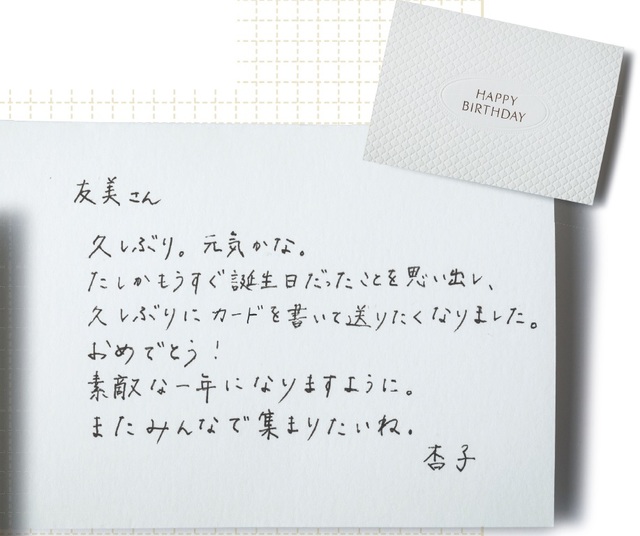 HAPPY
BIRTHDAY
友美さん
久しぶり。元気かな。
たしかもうすぐ誕生日だったことを思い出し、
久しぶりにカードを書いて送りたくなりました。
おめでとう！
素敵な一年になりますように。
またみんなで集まりたいね。
杏子